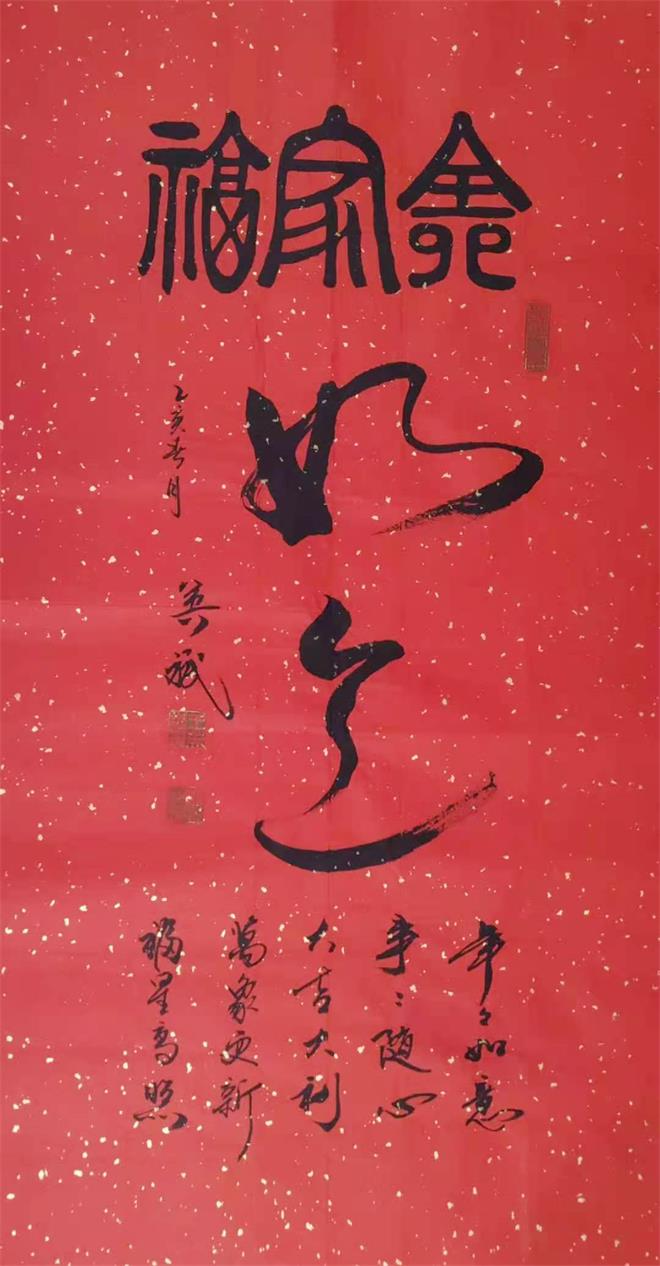 全家福
如意
年々如意
事々随心
大吉大利
萬象更新
福星高照
己亥春月
英斌